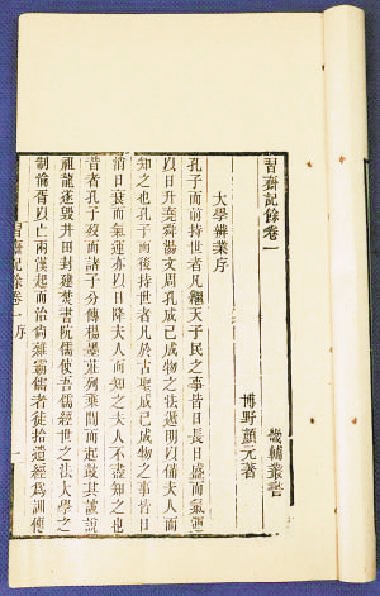 習齋記餘卷一 畿輔叢書
博野顏元著
大學辨業序
孔子而前持世者凡繼天子民之事皆日長日盛而氣運
以日升堯舜湯文周孔成己成物之法遞明以備夫人而
知之也孔子而後持世者凡於古聖成己成物之事皆日
消日衰而氣運亦以日降夫人而知之夫人不盡知之也
昔者孔子歿而諸子分傳楊墨莊列乘間而起鼓其詖說
祖龍遂毀井田封建焚書阬儒使吾儒經世之法大學之
制淪胥以亡兩漢起而治尚雜霸儒者徒拾遺經爲訓傳
習齋記餘卷一序 一